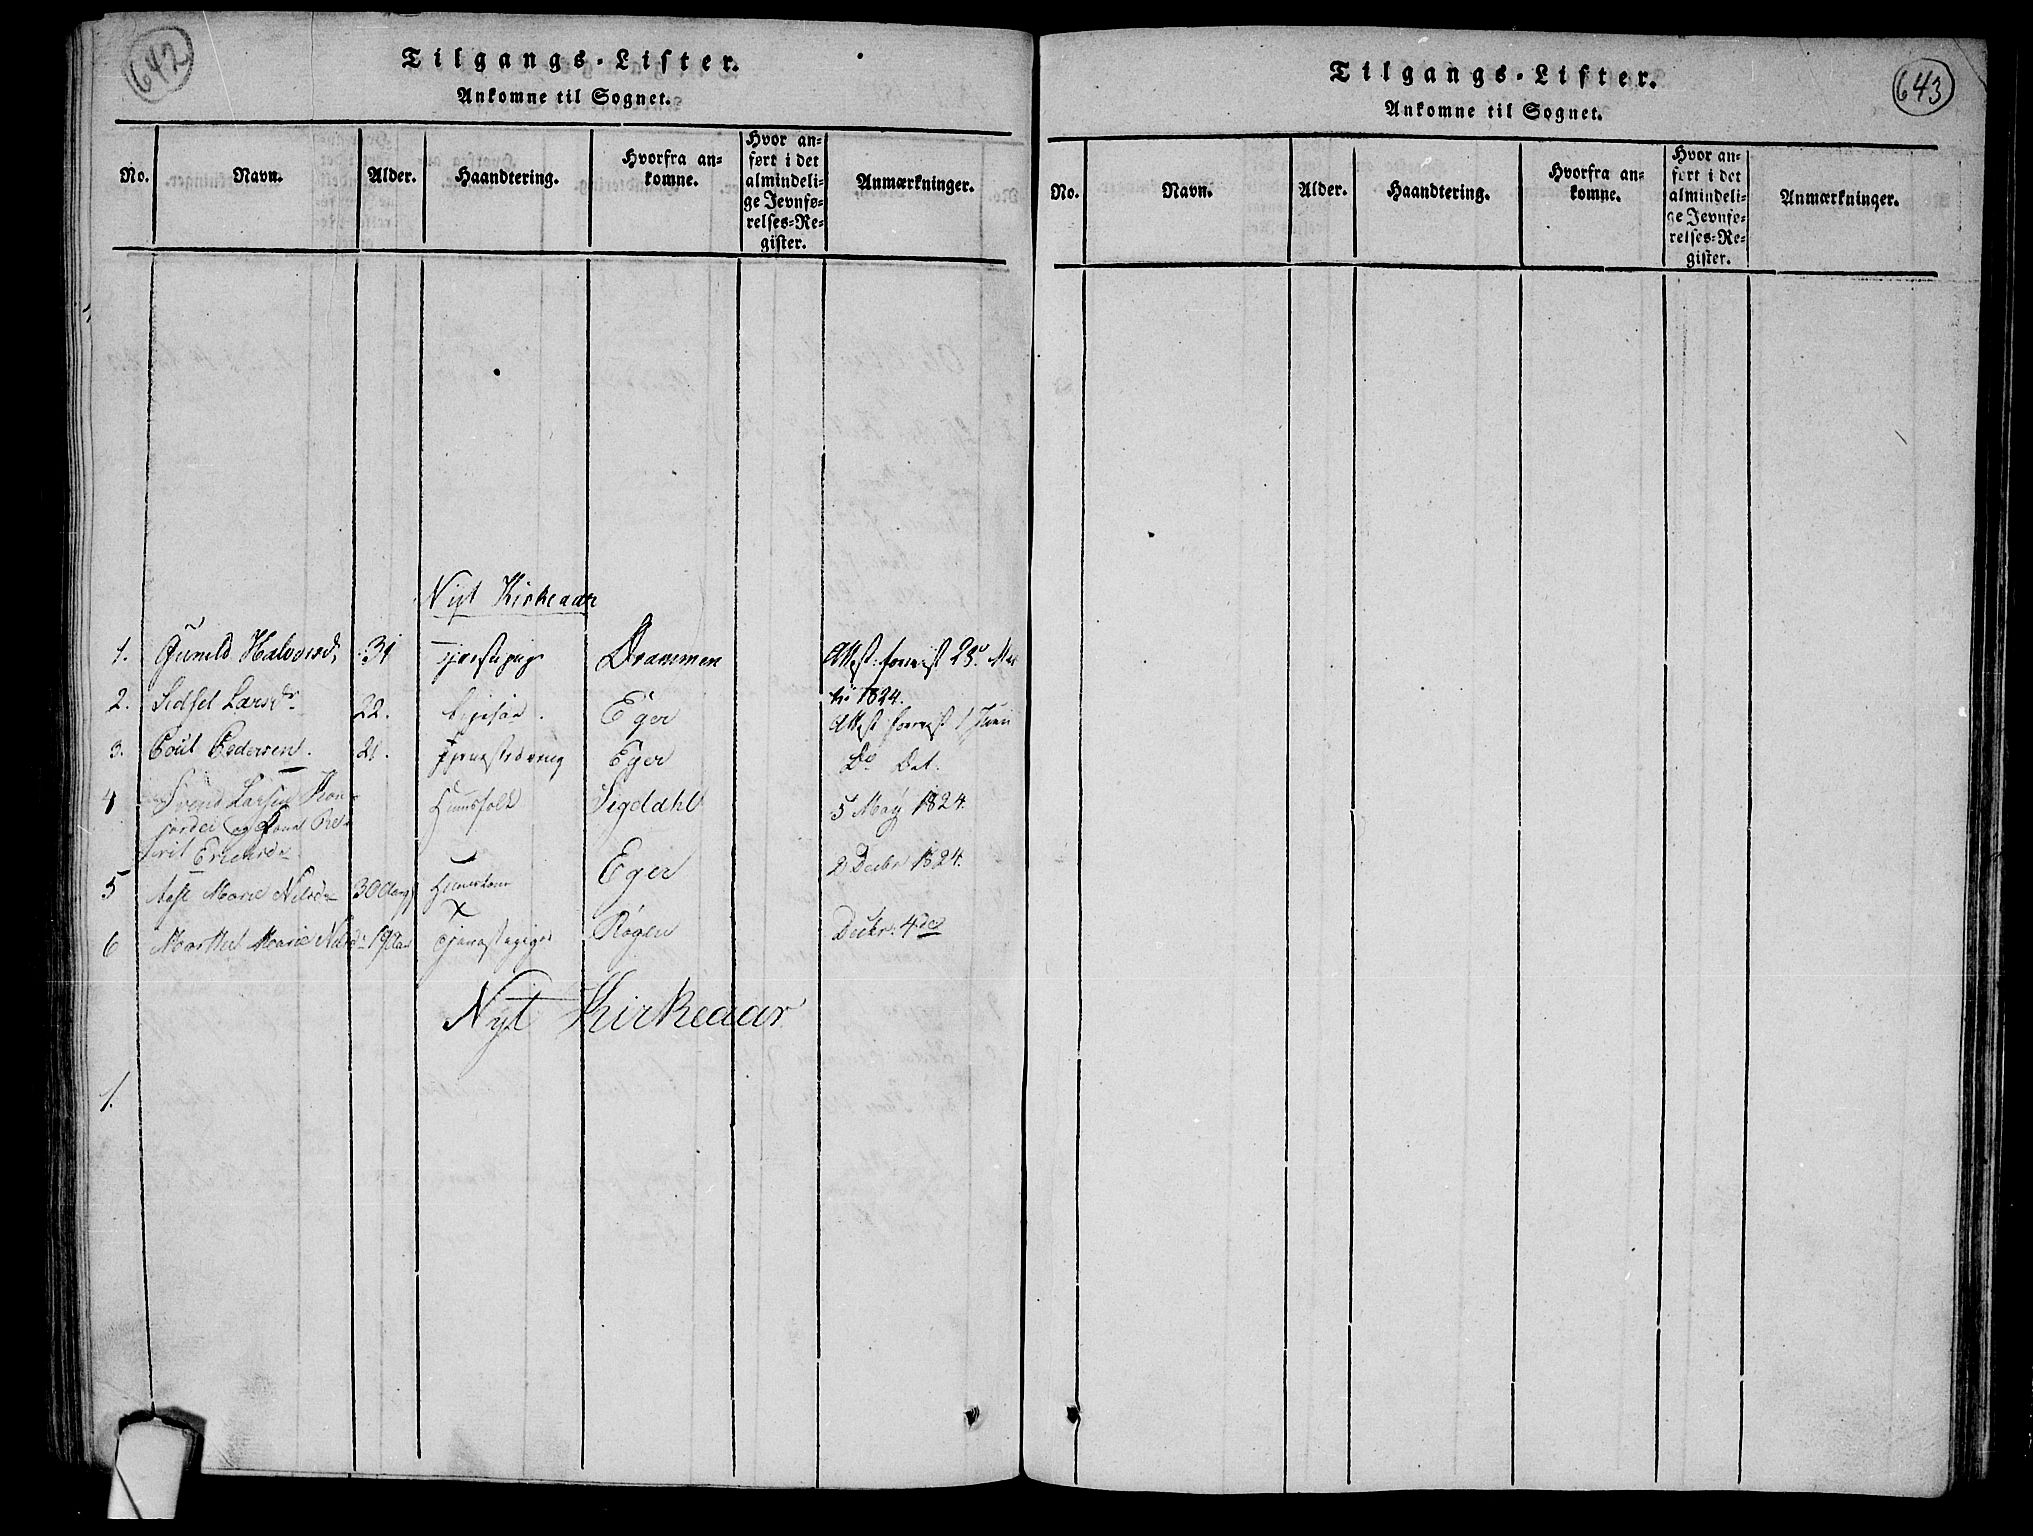 642
Tilgangs-Lister.
Ankomne til Sognet.
No. Navn. Alder. Haandtering. Hvorfra an=komne. Hvor an=ført i det almindeli=ge Jevnfø=relses=Re=gister. Anmærkninger.
Nyt Kirkeaar
1. Guneld Halvorsd, 31 Drammen Attest forevist 23
1824.
2. Sidsel Larsdr 22. Eger Attest forevist 1 Juni
3. Poul Pedersen. 21. Eger Do Dat.
4 Svend Larsen Huusfolk Sigdahl 5 May 1824.
og Kone
5 Marie Nilsdr 30 Eger 2 Decbr 1824.
6 Marthe Marie Nilsd 19 Røgen Decbr. 4de
Nyt Kirkeaar
1.
643
Tilgangs-Lister.
Ankomne til Sognet.
No. Navn. Alder. Haandtering. Hvorfra an=komne. Hvor an=ført i det almindeli=ge Jevnfø=relses=Re=gister. Anmærkninger.